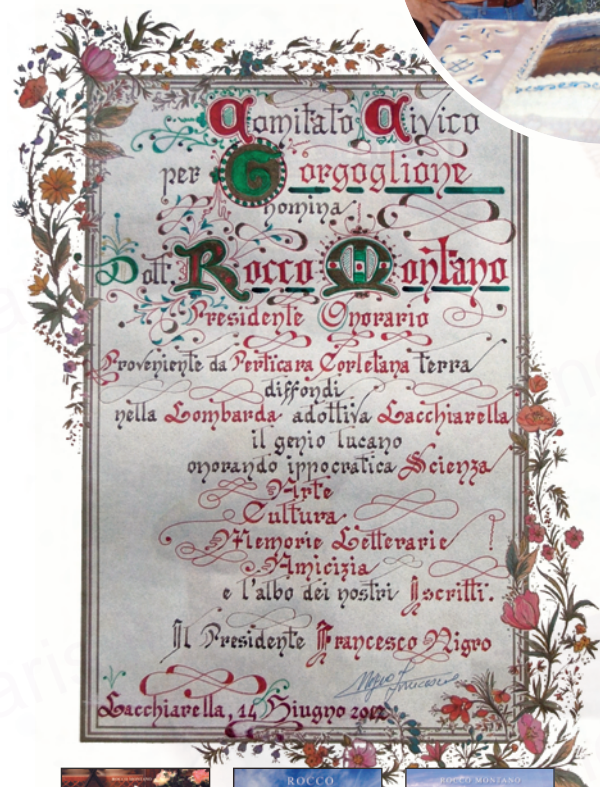 Comitato Civico
per Gorgoglione
nomina
Dott. Rocco Montano
Presidente Onorario
Proveniente da Perticara Corletana terra
diffondi
nella Lombarda adottiva Lacchiarella
il genio lucano
onorando ippocratica Scienza
Arte
Cultura
Memorie Letterarie
Amicizia
e l'albo dei nostri Iscritti.
Il Presidente Francesco Nigro
Lacchiarella, 14 Giugno
ROCCO MONTANO
ROCCO
ROCCO MONTANO